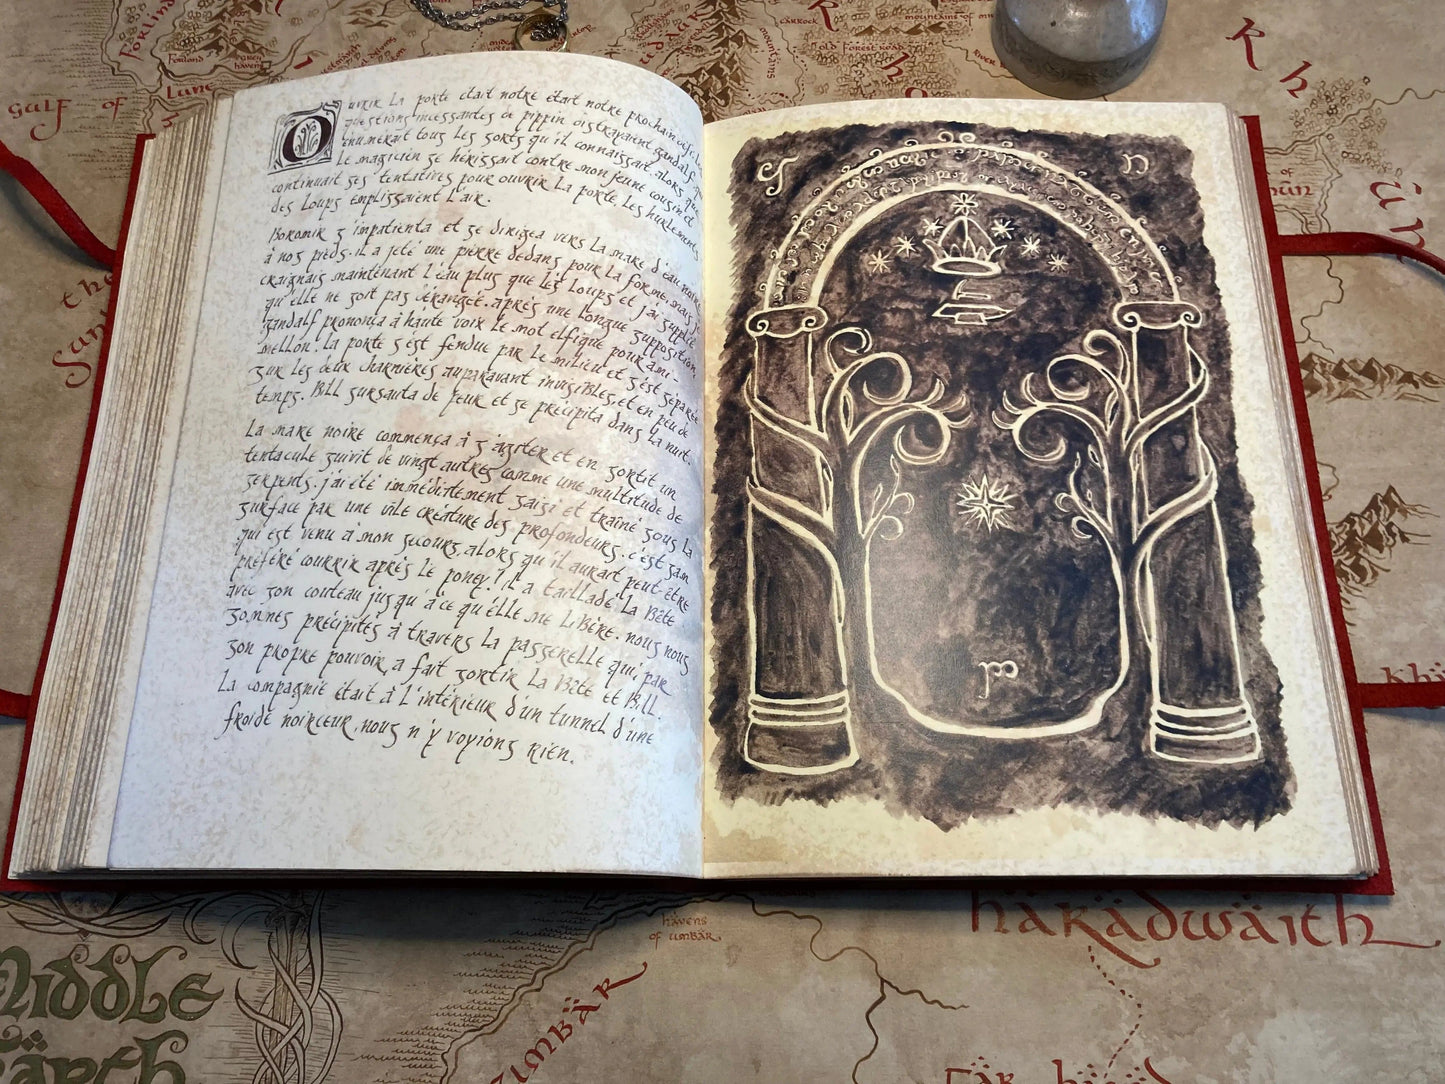 Gulf of Lune
Forlond
Grey havens
Carrock
old Forest road
mountains of
River
Ouvrir La porte était notre était notre prochain défi. Les
questions incessantes de pippin distrayaient gandalf qui
énumérait tous Les sorts qu'il connaissait. alors que
Le magicien se hérissait contre mon jeune cousin et
continuait ses tentatives pour ouvrir La porte, Les hurlements
des Loups emplissaient L'air.
Boromir s'impatienta et se dirigea vers La mare d'eau noire
à nos pieds. il a jeté une pierre dedans pour La forme, mais je
craignais maintenant L'eau plus que Les Loups et j'ai supplié
qu'elle ne soit pas dérangée. après une Longue supposition,
gandalf prononça à haute voix Le mot elfique pour ami -
mellon. La porte s'est fendue par Le milieu et s'est séparée
sur Les deux charnières auparavant invisibles, et en peu de
temps. Bill sursauta de peur et se précipita dans La nuit.
La mare noire commença à s'agiter et en sortit un
tentacule suivit de vingt autres comme une multitude de
serpents. j'ai été immédiatement saisi et traîné sous La
surface par une vile créature des profondeurs. c'est sam
qui est venu à mon secours, alors qu'il aurait peut-être
préféré courrir après Le poney! il a tailladé La Bête
avec son couteau jusqu'à ce qu'elle me Libère. nous nous
sommes précipités à travers La passerelle qui, par
son propre pouvoir, a fait sortir La Bête et Bill.
La compagnie était à L'intérieur d'un tunnel d'une
froide noirceur, nous n'y voyions rien.
havens
of umbar
härädwäith
Middle
Earth
umbär